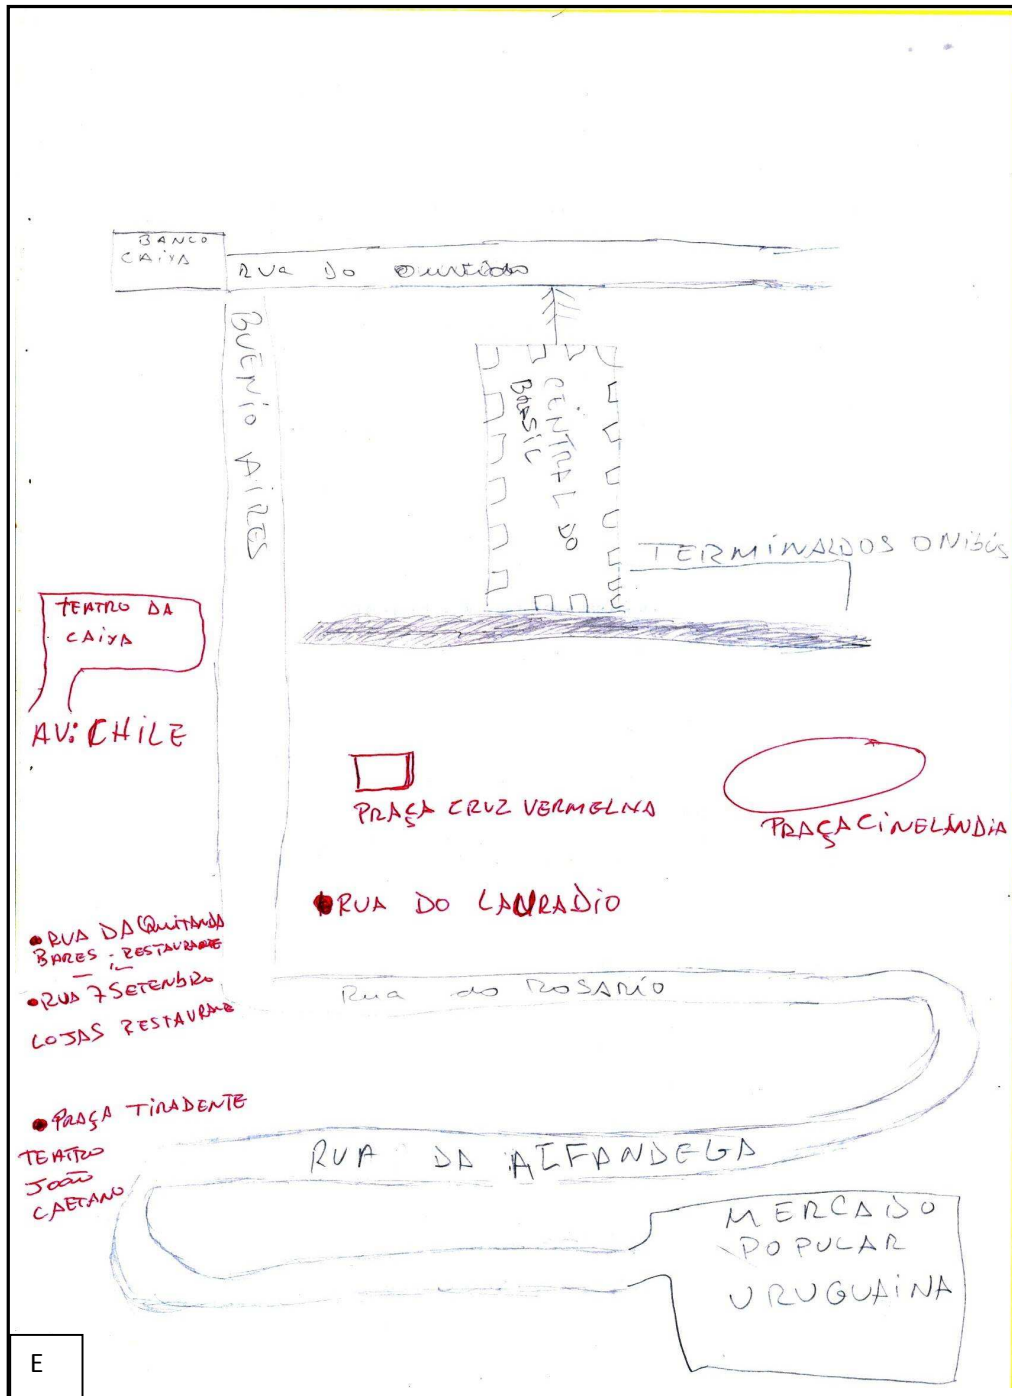 BANCO
CAIXA
RUA DO OUVIDOR
BUENIO AIRES
CENTRAL DO
BRASIL
TERMINALDOS ONIBUS
TEATRO DA
CAIXA
AV: CHILE
PRAÇA CRUZ VERMELHA
PRAÇA CINELANDIA
RUA DO LAURADIO
RUA DA QUITANDA
BARES : RESTAURANE
RUA 7 SETENBRO
LOJAS RESTAURANE
Rua do ROSARIO
PRAÇA TIRADENTE
TEATRO
JOÃO
CAETANO
RUA DA ALFANDEGA
MERCADO
POPULAR
URUGUAINA
E